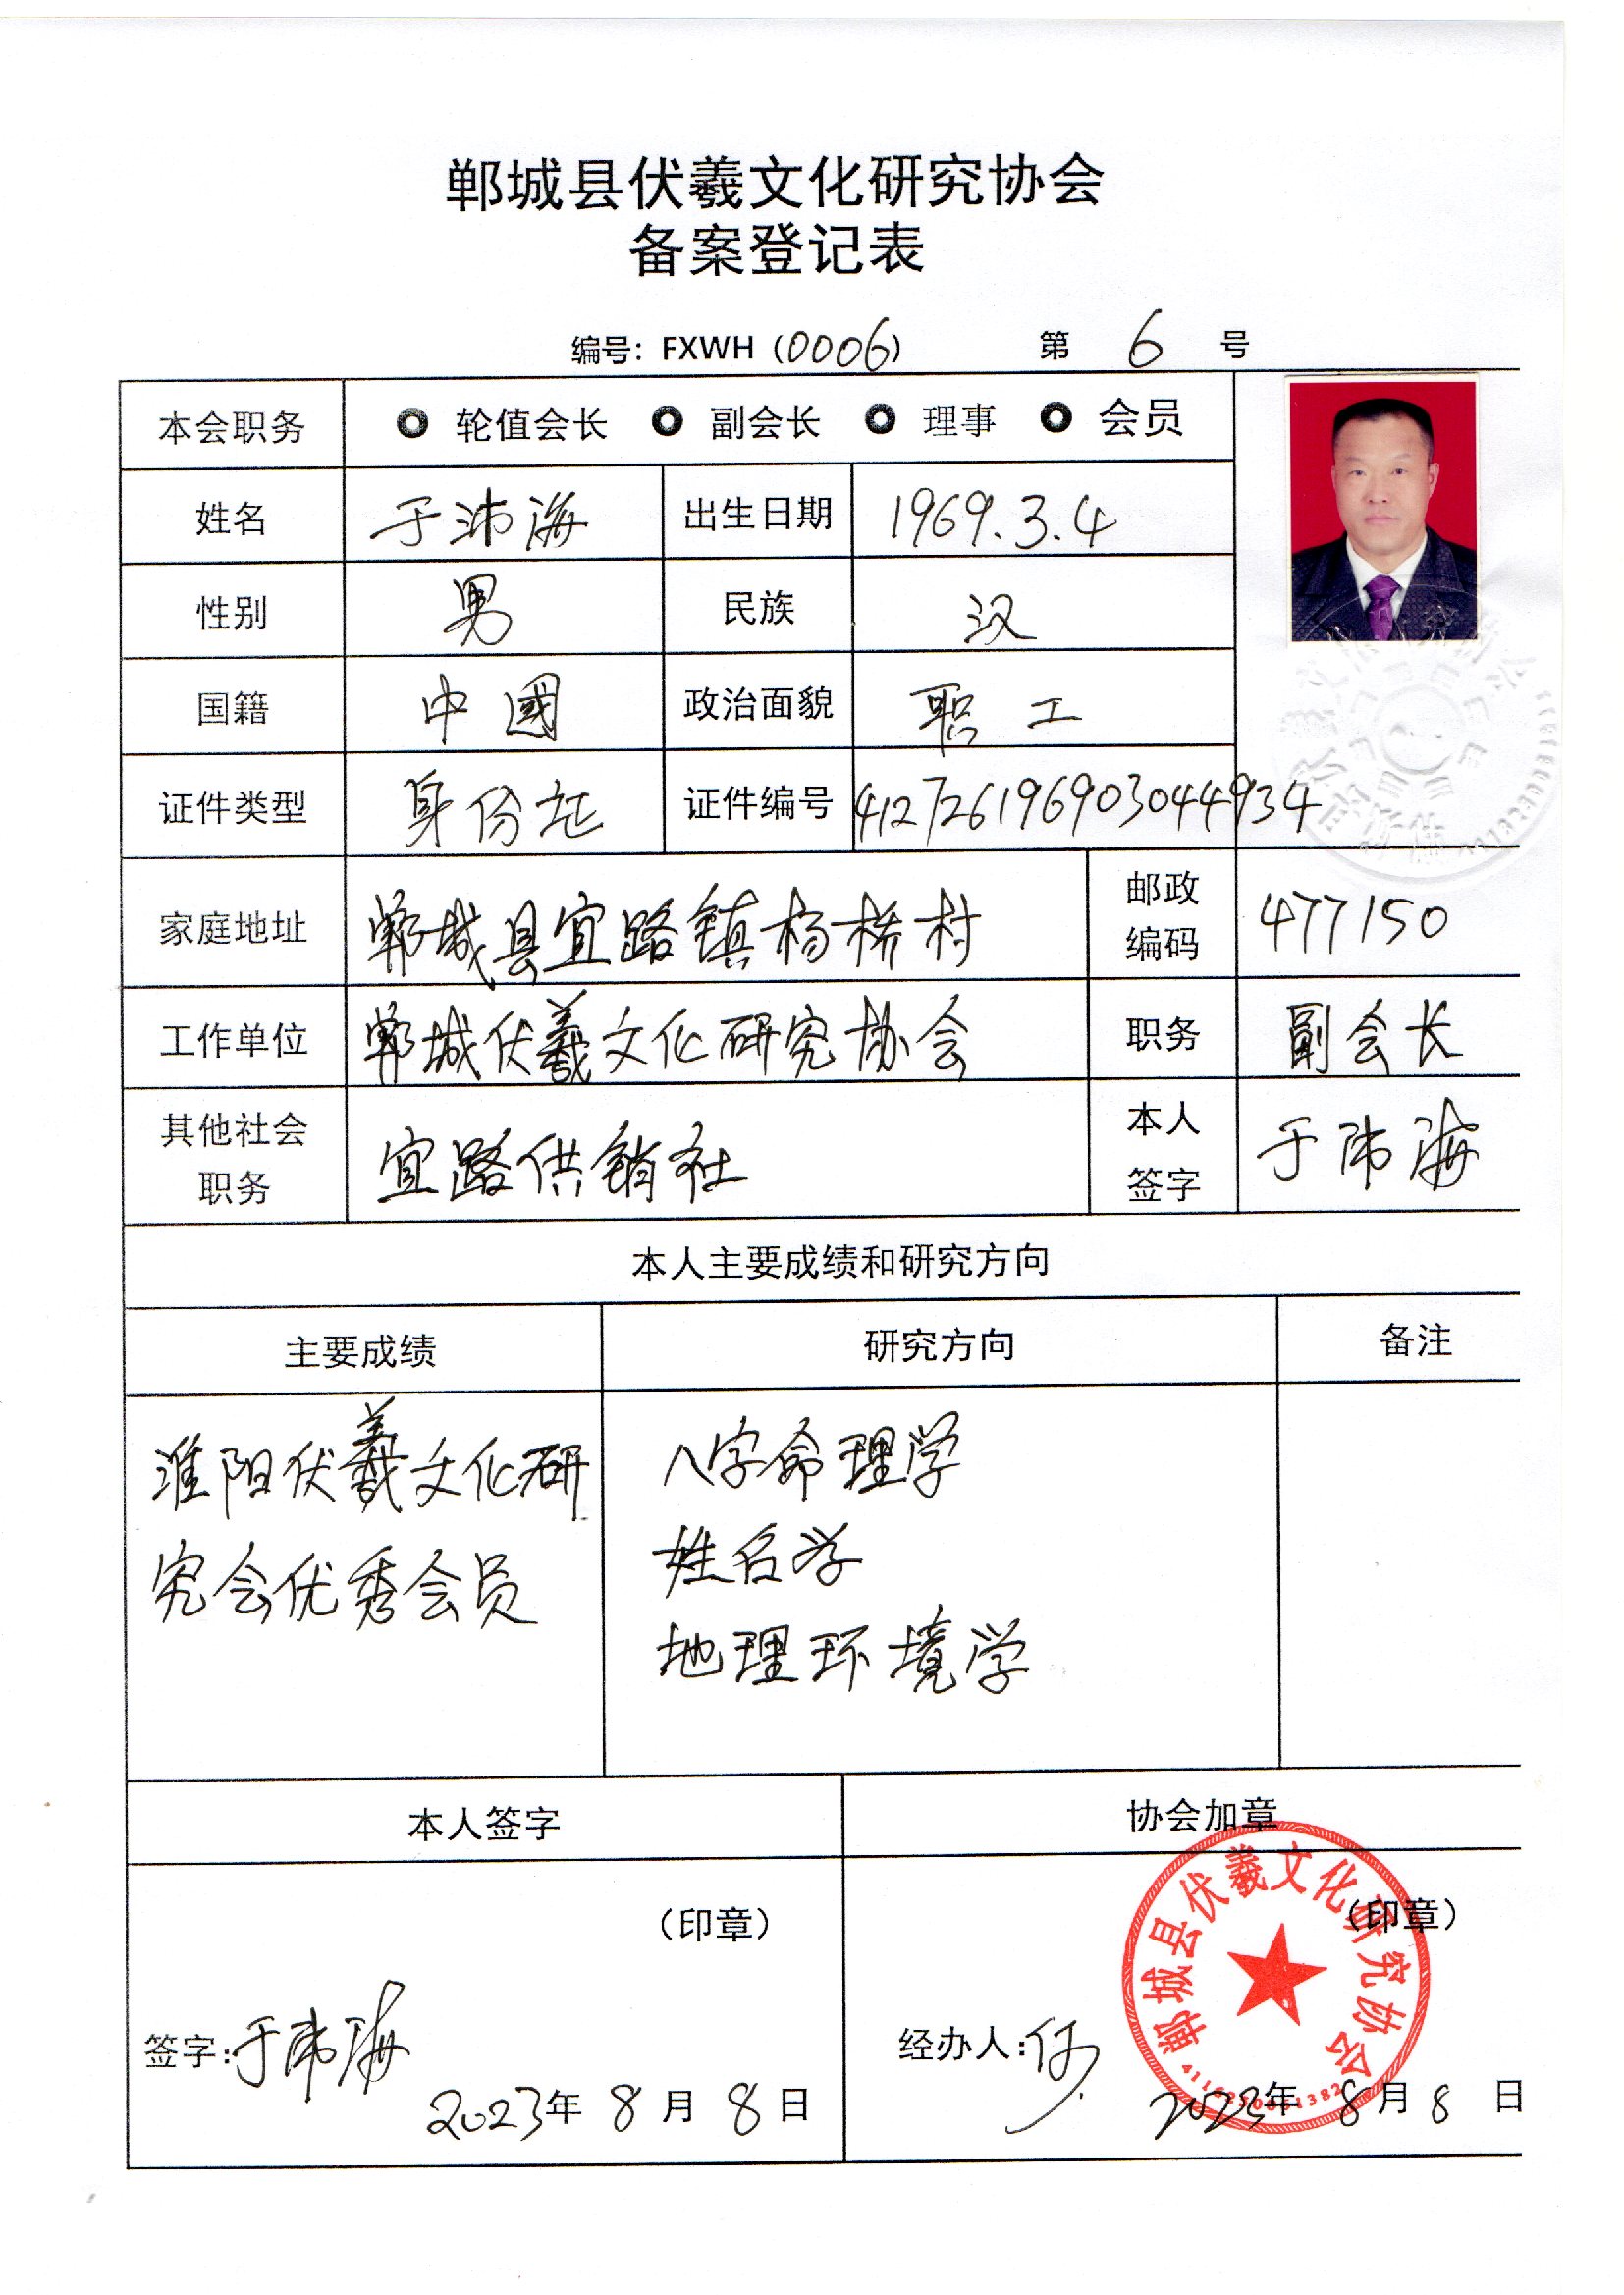 郸城县伏羲文化研究协会
备案登记表
编号：FXWH（0006） 第 6 号
本会职务 轮值会长 副会长 理事 会员
姓名 于沛海 出生日期 1969.3.4
性别 男 民族 汉
国籍 中國 政治面貌 职工
证件类型 身份证 证件编号 412726196903044934
家庭地址 郸城县宜路镇杨桥村 邮政编码 477150
工作单位 郸城伏羲文化研究协会 职务 副会长
其他社会职务 宜路供销社 本人签字 于沛海
本人主要成绩和研究方向
主要成绩 研究方向 备注
淮阳伏羲文化研
究会优秀会员
八字命理学
姓名学
地理环境学
本人签字 协会加章
（印章） （印章）
郸城县伏羲文化研究协会
签字：于沛海 经办人：
2023年 8 月 8 日 2023年 8 月 8 日